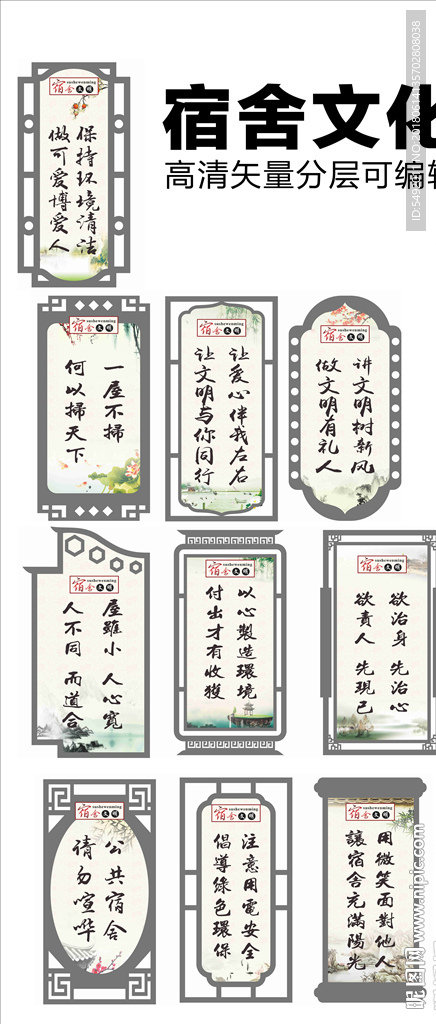 宿舍文化
高清矢量分层可编辑
ID:54985
NO:20180614135702808038
宿舍文明
sushewenming
保持环境清洁
做可爱博爱人
宿舍文明
sushewenming
一屋不掃
何以掃天下
宿舍文明
sushewenming
让爱心伴我左右
让文明与你同行
宿舍文明
sushewenming
讲文明树新风
做文明有礼人
宿舍文明
sushewenming
屋雖小 人心寬
人不同 而道合
宿舍文明
sushewenming
以心製造環境
付出才有收獲
宿舍文明
sushewenming
欲治身 先治心
欲責人 先現己
宿舍文明
sushewenming
公共宿舍
请勿喧哗
宿舍文明
sushewenming
注意用電安全
倡導綠色環保
宿舍文明
sushewenming
用微笑面對他人
讓宿舍充滿陽光
昵图网 www.nipic.com